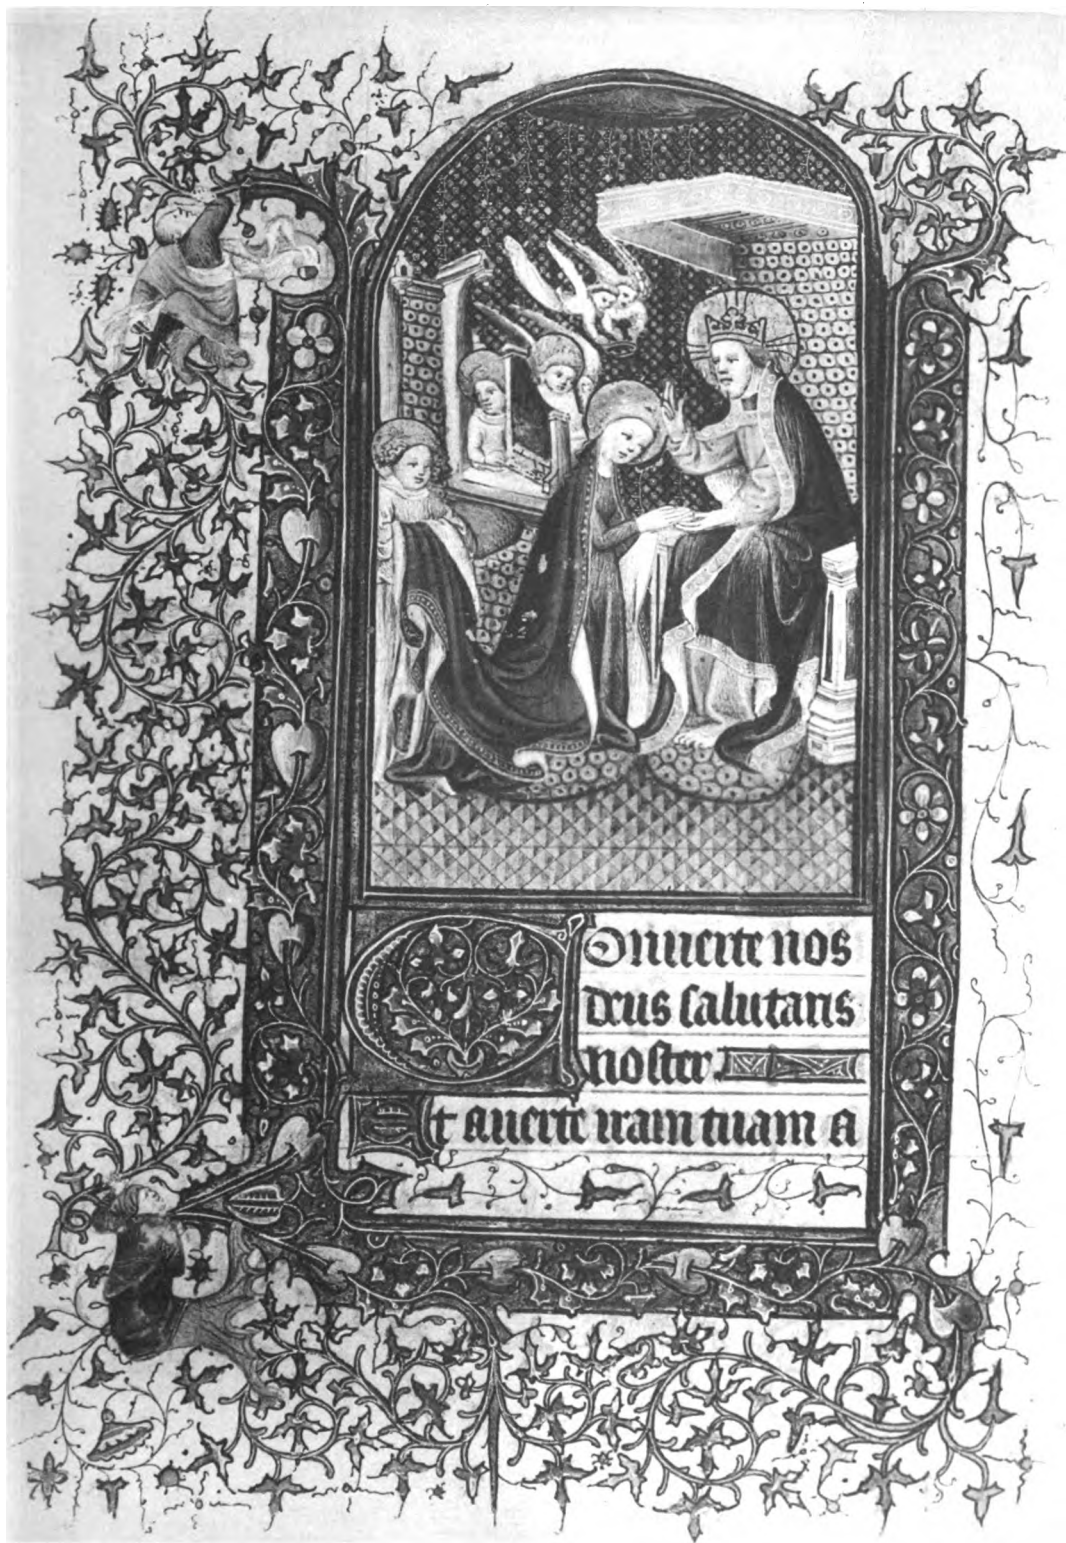 Conuerte nos
deus salutaris
noster
Et auerte iram tuam a